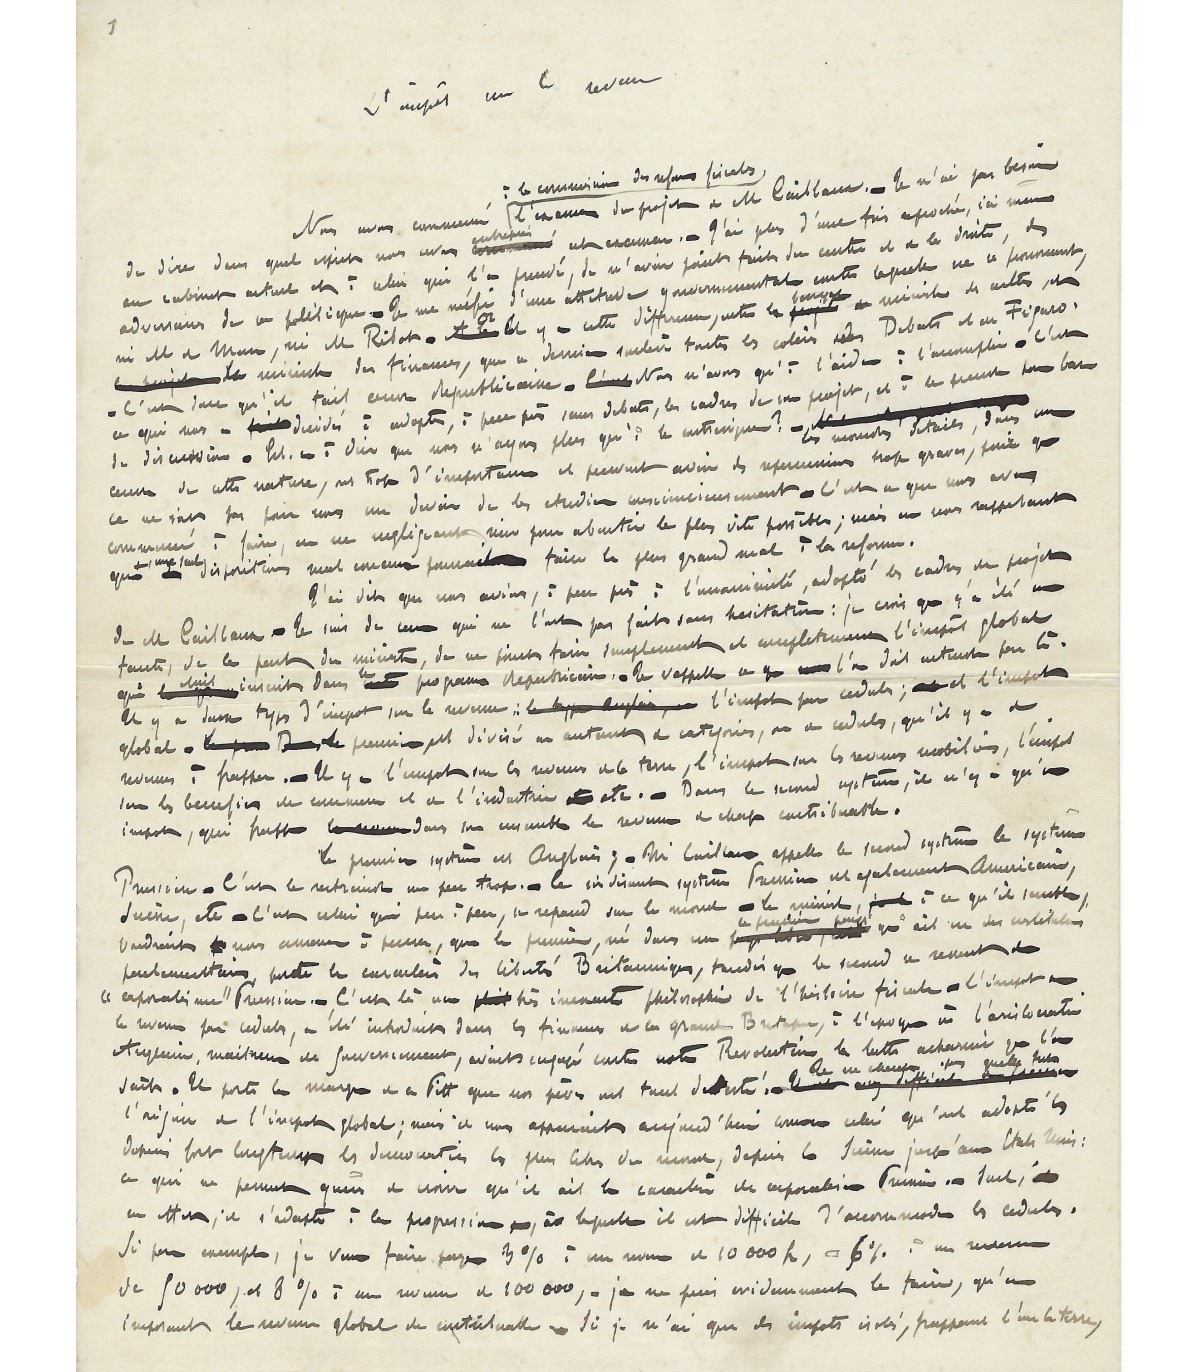 1
L'impôt sur le revenu
à la commission des réformes fiscales,
Nous avons commencé l'examen du projet de M Caillaux. — Je n'ai pas besoin
de dire dans quel esprit nous avons entrepris cet examen. — J'ai plus d'une fois reproché, ici même
au cabinet actuel et à celui qui l'a précédé, de n'avoir point tout du centre et de la droite, des
adversaires de sa politique. — Je me méfie d'une attitude gouvernementale contre laquelle ne se prononcent,
ni M de Mun, ni M Ribot. — Or il y a cette différence, entre le ministre des cultes, et
le ministre des Finances, que ce dernier soulève toutes les colères des Débats et du Figaro.
— C'est donc qu'il fait œuvre Républicaine. — Nous n'avons qu'à l'aider à l'accomplir. — C'est
ce qui nous a décidés à adopter, à peu près sans débats, les cadres de son projet, et à le prendre pour base
de discussion. — Est-ce à dire que nous n'ayons plus qu'à le contresigner? — les moindres détails, dans une
œuvre de cette nature, ont trop d'importance et peuvent avoir des répercussions trop graves, pour que
ce ne soit pas pour nous un devoir de les étudier consciencieusement. — C'est ce que nous avons
commencé à faire, en ne négligeant rien pour aboutir le plus vite possible; mais en nous rappelant
que dispositions mal conçues faire le plus grand mal à la réforme.
J'ai dit que nous avions, à peu près à l'unanimité, adopté les cadres du projet
de M Caillaux. — Je suis de ceux qui ne l'ont pas fait sans hésitation: je crois que ç'a été une
faute, de la part du ministre, de ne point faire simplement et complètement l'impôt global
qui était inscrit dans le programme Républicain. — Je rappelle ce que l'on doit entendre par là.
Il y a deux types d'impôt sur le revenu: l'impôt par cédules; et l'impôt
global. — Le premier est divisé en autant de catégories, ou de cédules, qu'il y a de
revenus à frapper. — Il y a l'impôt sur les revenus de la terre, l'impôt sur les revenus mobiliers, l'impôt
sur les bénéfices du commerce et de l'industrie etc. — Dans le second système, il n'y a qu'un
impôt, qui frappe dans son ensemble le revenu de chaque contribuable.
Le premier système est Anglais; — M Caillaux appelle le second système le système
Prussien. — C'est le restreindre un peu trop. — Le soi disant système Prussien est également Américain,
Suisse, etc. — C'est celui qui peu à peu, se répand sur le monde. — Le ministre, à ce qu'il semble,
voudrait nous amener à penser, que le premier, né dans un qui ait eu des institutions
parlementaires, porte le caractère des libertés Britanniques, tandis que le second se ressent du
"caporalisme" Prussien. — C'est là une très inexacte philosophie de l'histoire fiscale. — L'impôt sur
le revenu par cédules, a été introduit dans les finances de la grande Bretagne, à l'époque où l'aristocratie
Anglaise, maîtresse du Gouvernement, avait engagé contre notre Révolution, la lutte acharnée que l'on
sait. — Il porte la marque de ce Pitt que nos pères ont tant détesté. — Je ne cherche pas quelle fut
l'origine de l'impôt global; mais il nous apparaît aujourd'hui comme celui qu'ont adopté les
depuis fort longtemps les démocraties les plus libres du monde, depuis la Suisse jusqu'aux Etats Unis:
ce qui ne permet guère de croire qu'il ait le caractère du caporalisme Prussien. — Seul,
en effet, il s'adapte à la progression, à laquelle il est difficile d'accommoder les cédules.
Si par exemple, je veux faire payer 3% à un revenu de 10 000 f, — 6% à un revenu
de 50 000, et 8% à un revenu de 100 000, — je ne puis évidemment le faire, qu'en
imposant le revenu global du contribuable. — Si je n'ai que des impôts isolés, frappant l'un la terre,